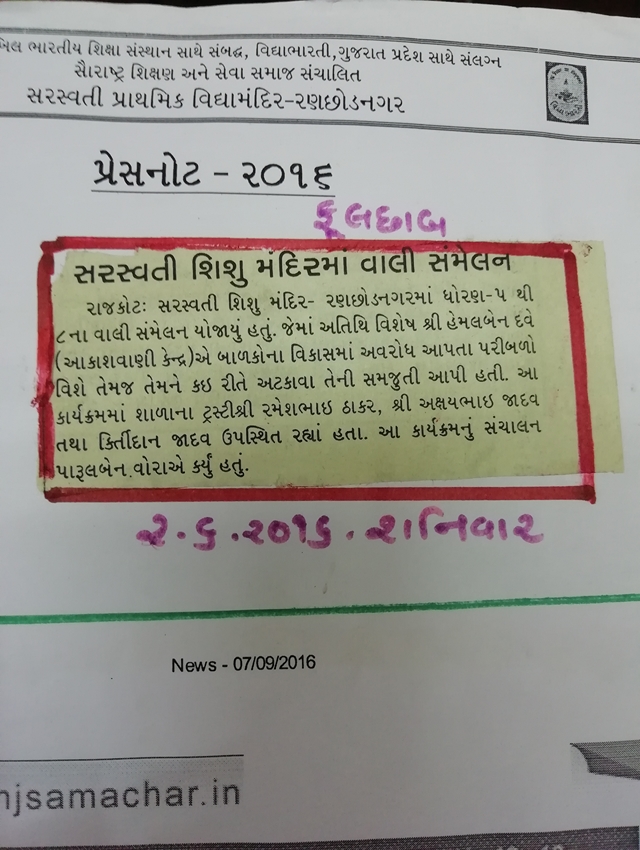 ખિલ ભારતીય શિક્ષા સંસ્થાન સાથે સંબદ્ધ, વિદ્યાભારતી,ગુજરાત પ્રદેશ સાથે સંલગ્ન
સૈારાષ્ટ્ર શિક્ષણ અને સેવા સમાજ સંચાલિત
સરસ્વતી પ્રાથમિક વિદ્યામંદિર-રણછોડનગર
પ્રેસનોટ - ૨૦૧૬
ફૂલછાબ
સરસ્વતી શિશુ મંદિરમાં વાલી સંમેલન
રાજકોટઃ સરસ્વતી શિશુ મંદિર- રણછોડનગરમાં ધોરણ-૫ થી
૮ના વાલી સંમેલન યોજાયુ હતું. જેમાં અતિથિ વિશેષ શ્રી હેમલબેન દવે
(આકાશવાણી કેન્દ્ર)એ બાળકોના વિકાસમાં અવરોધ આપતા પરીબળો
વિશે તેમજ તેમને કઇ રીતે અટકાવા તેની સમજુતી આપી હતી. આ
કાર્યક્રમમાં શાળાના ટ્રસ્ટીશ્રી રમેશભાઇ ઠાકર, શ્રી અક્ષયભાઇ જાદવ
તથા કિર્તીદાન જાદવ ઉપસ્થિત રહ્યાં હતા. આ કાર્યક્રમનું સંચાલન
પારૂલબેન વોરાએ કર્યું હતું.
૨૦૧૬. શનિવાર
News - 07/09/2016
njsamachar.in